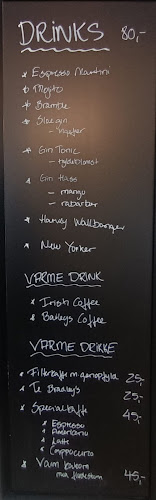 DRINKS 80,-
* Espresso Martini
* Mojito
* Bramble
* Sloe gin
- hyldeblomst
* Gin Hass
- mango
- rabarber
* Harvey Wallbanger
* New Yorker
VARME DRINK
* Irish Coffee
* Baileys Coffee
VARME DRIKKE
* Filterkaffe m. genopfyld 25,-
* Te Bradleys 25,-
* Specialkaffe 45,-
* Espresso
* Americano
* Latte
* Cappuccino
* Varm kakao 45,-